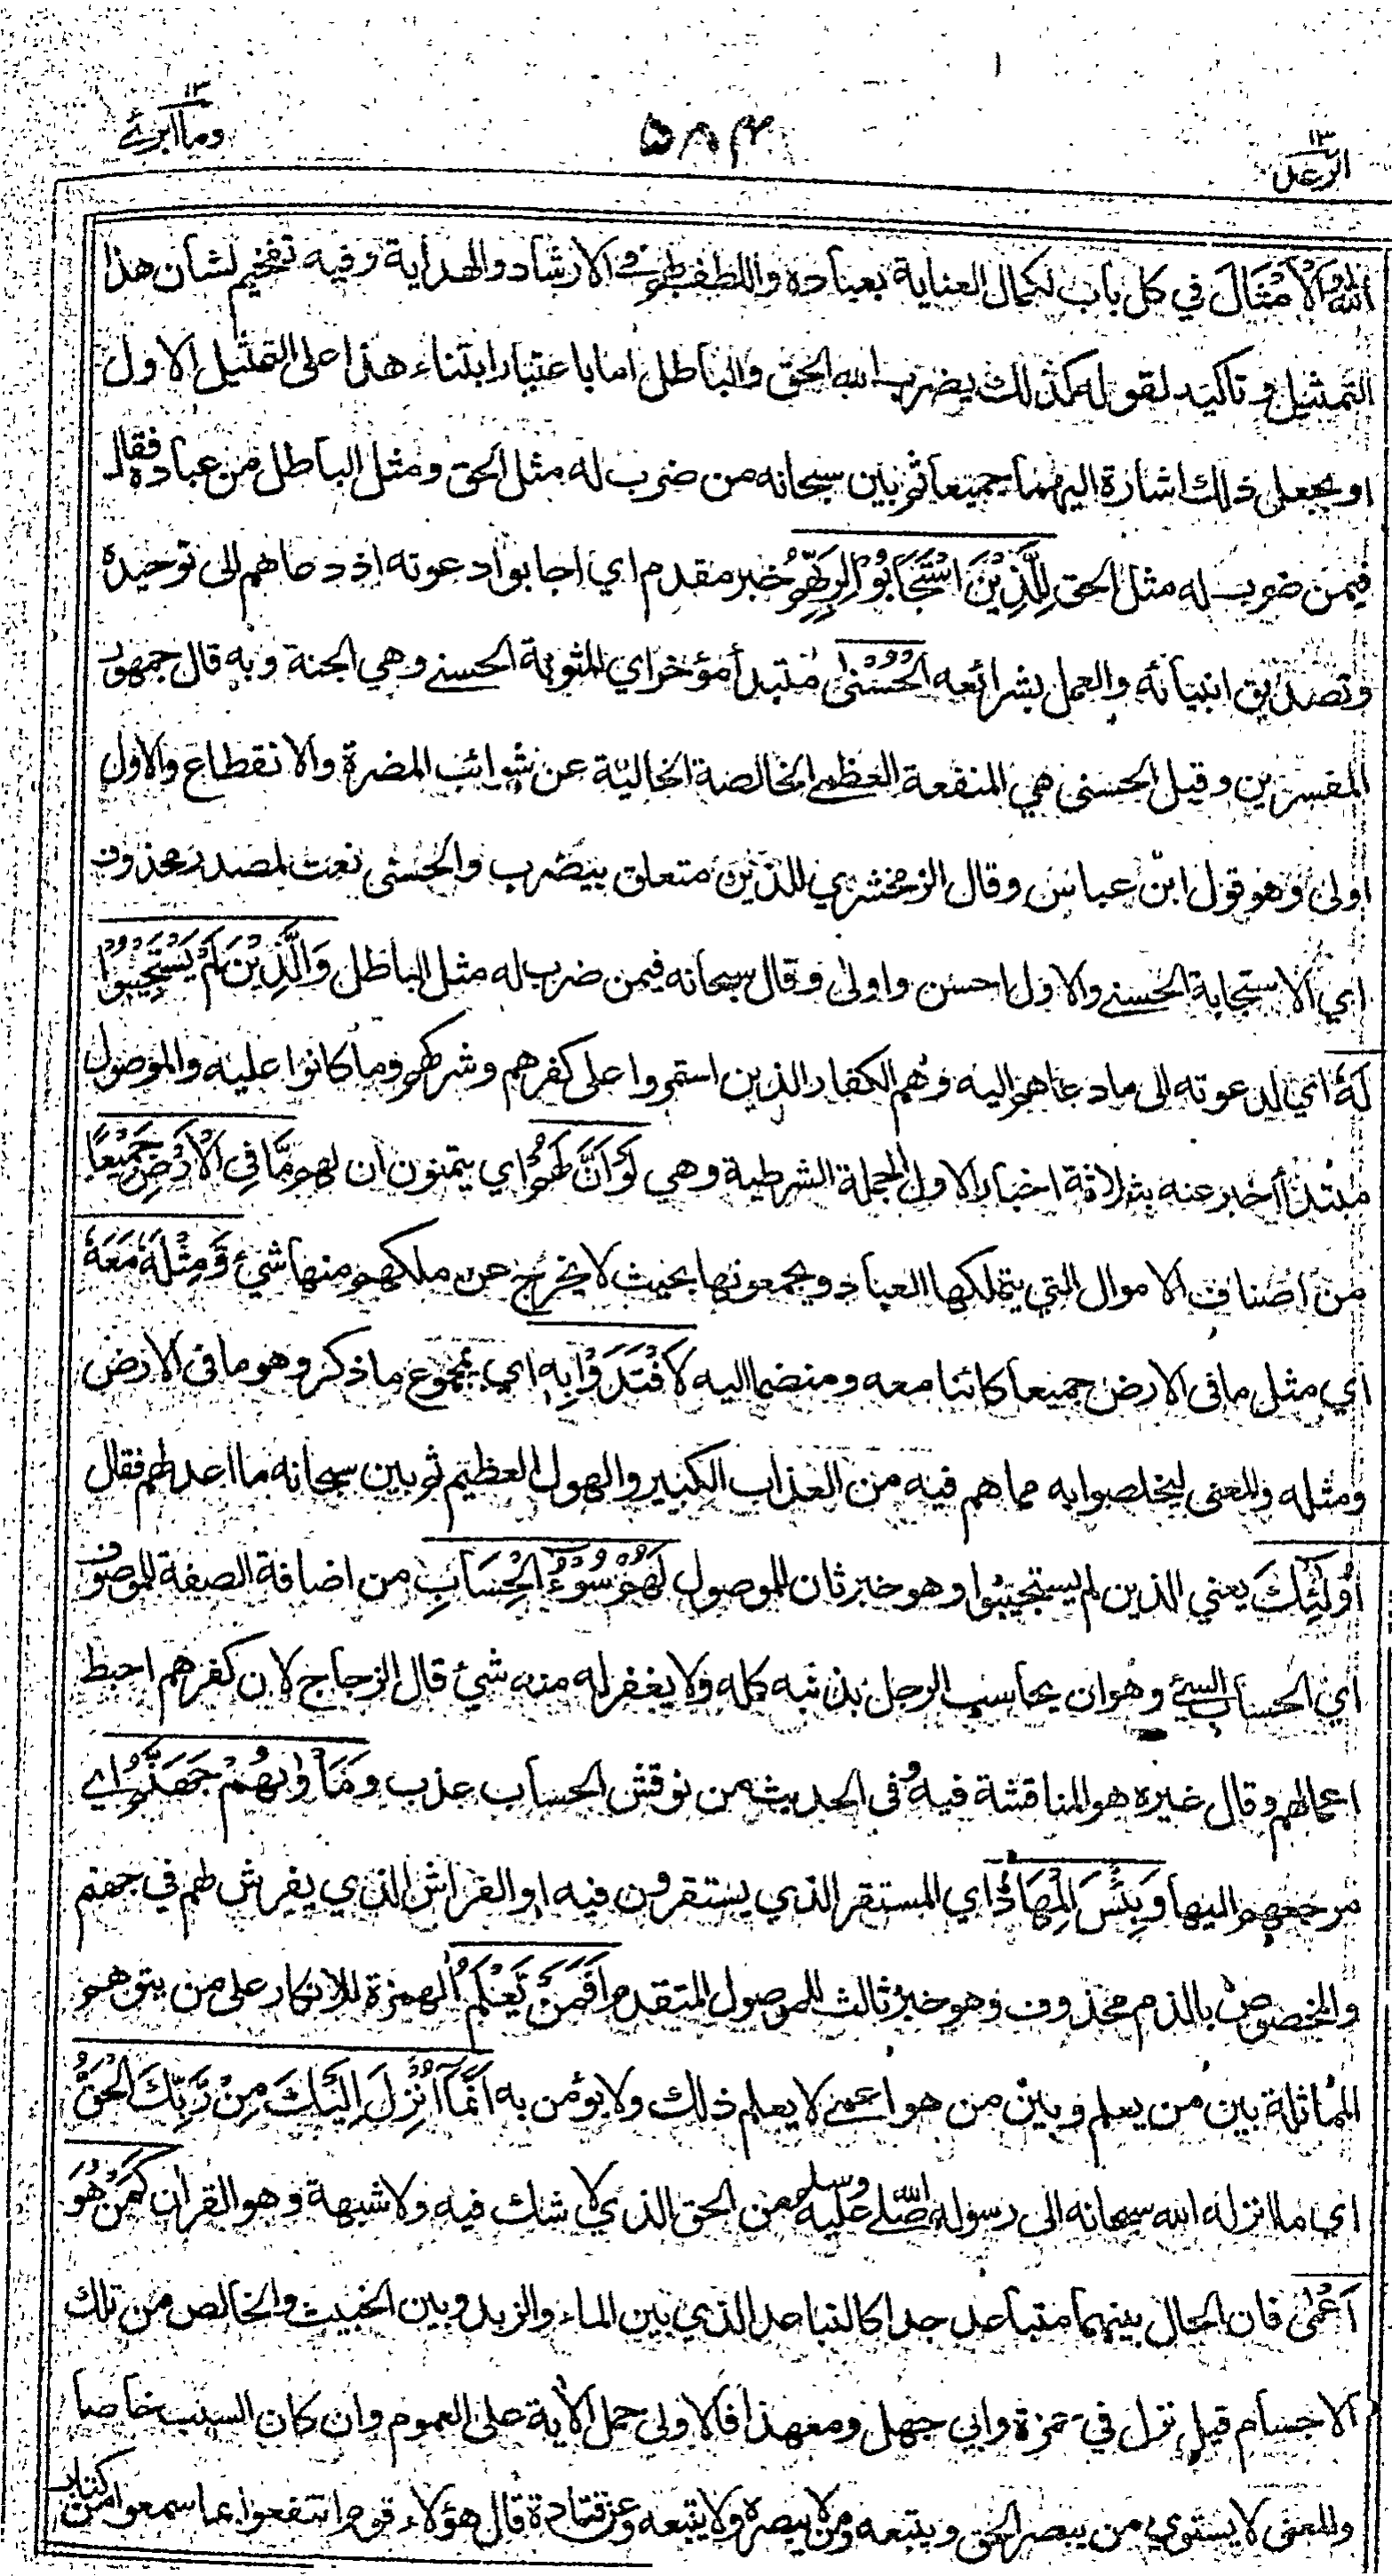 وما ابرئ ١٣
٥٨٤
الرعد ١٣
الله الْأَمْثَالَ في كل باب لكمال العناية بعباده واللطف بهم في الارشاد والهداية وفيه تفخيم لشان هذا
التمثيل وتاكيد لقوله كذلك يضرب الله الحق والباطل اما باعتبار ابتناء هذا على التمثيل الاول
او بجعل ذلك اشارة اليهما جميعا ثم بين سبحانه من ضرب له مثل الحق ومثل الباطل من عباده فقال
فيمن ضرب له مثل الحق لِلَّذِيْنَ اسْتَجَابُوْا لِرَبِّهِمُ خبر مقدم اي اجابوا دعوته اذ دعاهم الى توحيده
وتصديق انبيائه والعمل بشرائعه الْحُسْنٰى مبتدأ مؤخر اي المثوبة الحسنى وهي الجنة وبه قال جمهور
المفسرين وقيل الحسنى هي المنفعة العظمى الخالصة الخالية عن شوائب المضرة والانقطاع والاول
اولى وهو قول ابن عباس وقال الزمخشري للذين متعلق بيضرب والحسنى نعت لمصدر محذوف
اي الاستجابة الحسنى والاول احسن واولى وقال سبحانه فيمن ضرب له مثل الباطل وَالَّذِيْنَ لَمْ يَسْتَجِيْبُوْا
لَهٗ اي لدعوته الى ما دعاهم اليه وهم الكفار الذين استمروا على كفرهم وشركهم وما كانوا عليه والموصول
مبتدأ اخبر عنه بثلاثة اخبار الاول الجملة الشرطية وهي لَوْ اَنَّ لَهُمْ اي يتمنون ان لهم مَّا فِى الْاَرْضِ جَمِيْعًا
من اصناف الاموال التي يتملكها العباد ويجمعونها بحيث لا يخرج عن ملكهم منها شئ وَّمِثْلَهٗ مَعَهٗ
اي مثل ما في الارض جميعا كائنا معه ومنضما اليه لَافْتَدَوْا بِهٖ اي بمجموع ما ذكر وهو ما في الارض
ومثله والمعنى ليخلصوا به مما هم فيه من العذاب الكبير والهول العظيم ثم بين سبحانه ما اعد لهم فقال
اُولٰئِكَ يعني الذين لم يستجيبوا وهو خبر ثان للموصول لَهُمْ سُوْءُ الْحِسَابِ من اضافة الصفة للموصوف
اي الحساب السيئ وهو ان يحاسب الرجل بذنبه كله ولا يغفر له منه شئ قال الزجاج لان كفرهم احبط
اعمالهم وقال غيره هو المناقشة فيه وفي الحديث من نوقش الحساب عذب وَمَاْوٰىهُمْ جَهَنَّمُ اي
مرجعهم اليها وَبِئْسَ الْمِهَادُ اي المستقر الذي يستقرون فيه او الفراش الذي يفرش لهم في جهنم
والمخصوص بالذم محذوف وهو خبر ثالث للموصول المتقدم اَفَمَنْ يَّعْلَمُ الهمزة للانكار على من يتوهم
المماثلة بين من يعلم وبين من هو اعمى لا يعلم ذلك ولا يؤمن به اَنَّمَا اُنْزِلَ اِلَيْكَ مِنْ رَّبِّكَ الْحَقُّ
اي ما انزله الله سبحانه الى رسوله صلى الله عليه وسلم من الحق الذي لا شك فيه ولا شبهة وهو القران كَمَنْ هُوَ
اَعْمٰى فان الحال بينهما متباعد جدا كالتباعد الذي بين الماء والزبد وبين الخبيث والخالص من تلك
الاجسام قيل نزل في حمزة وابي جهل ومع هذا فالاولى حمل الآية على العموم وان كان السبب خاصا
والمعنى لا يستوي من يبصر الحق ويتبعه ومن لا يبصره ولا يتبعه وعن قتادة قال هؤلاء قوم انتفعوا بما سمعوا من كتاب